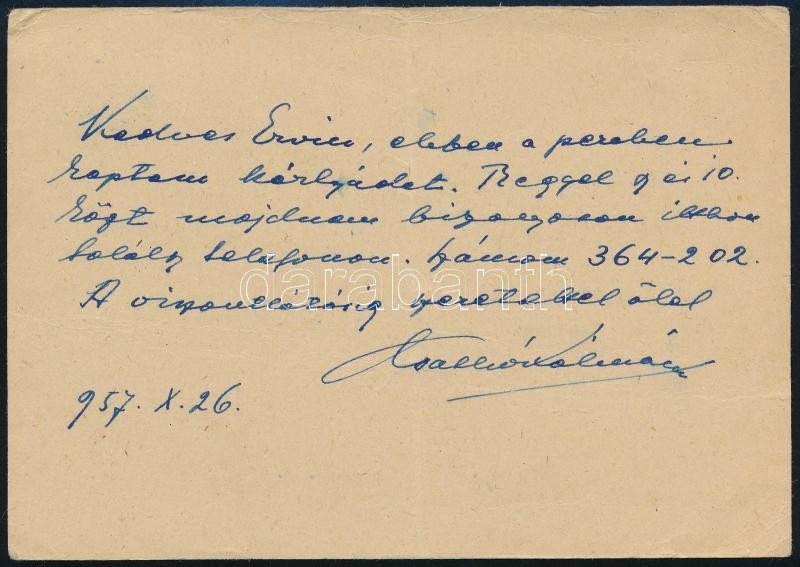 Kedves Ervin, ebben a percben
kaptam kártyádat. Reggel 9 és 10.
közt majdnem bizonyosan itthon
találsz telefonon. Számom 364-202.
A viszontlátásig szeretettel ölel
Csathó Kálmán
957. X. 26.
darabanth